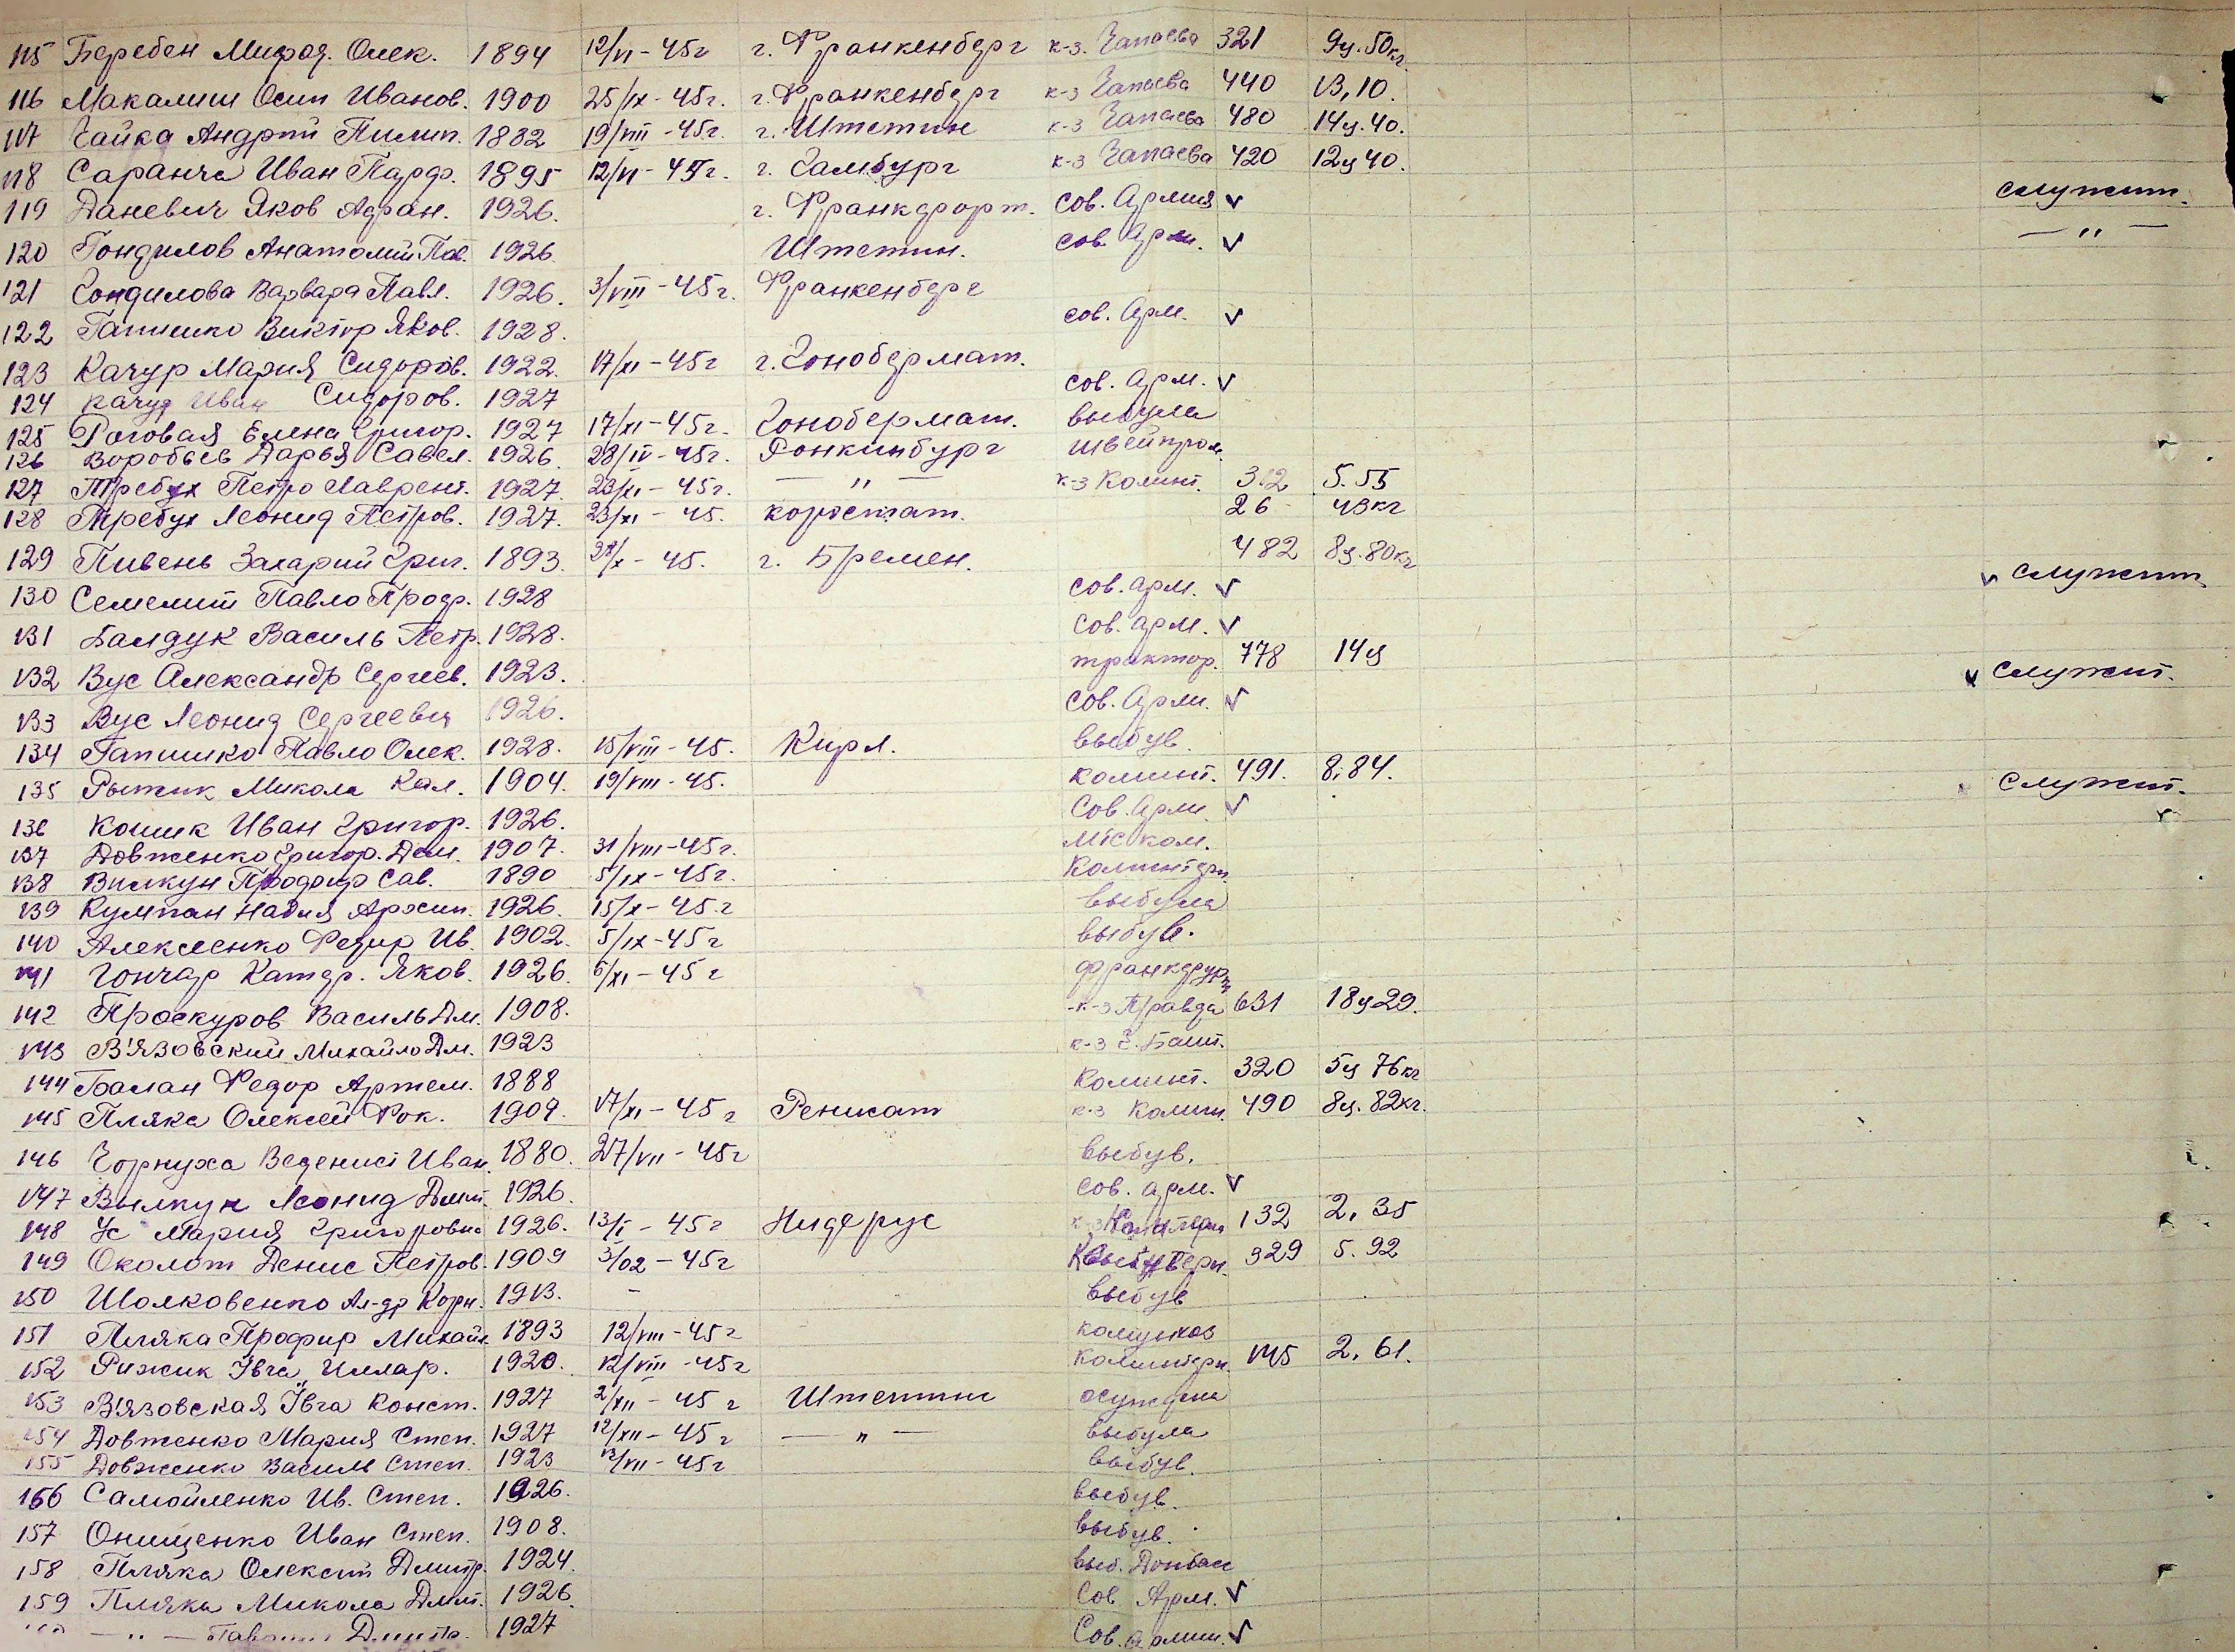 115 Беребен Мифод. Олек. 1894 12/VI-45г г. Франкенберг к-з. Чапаева 321 9ц.50кг.
116 Макалиш Осип Иванов. 1900 25/IX-45г. г. Франкенберг к-з Чапаева 440 13,10.
117 Чайка Андрий Пилип. 1882 19/VIII-45г. г. Штетин к-з Чапаева 480 14ц.40.
118 Саранча Иван Парф. 1895 12/VI-45г. г. Гамбург к-з Чапаева 420 12ц40.
119 Даневич Яков Адран. 1926. г. Франкфорт. сов. Армия v служит.
120 Гондилов Анатолий Пав. 1926. Штетин. сов. Арм. v — " —
121 Гондилова Варвара Павл. 1926. 3/VIII-45г. Франкенберг
122 Гапишко Виктор Яков. 1928. сов. Арм. v
123 Качур Мария Сидоров. 1922. 17/XI-45г г. Гонобермат.
124 Качур Иван Сидоров. 1927 сов. Арм. v
125 Роговая Елена Григор. 1927 17/XI-45г. Гонобермат. выбула
126 Воробьев Дарья Савел. 1926. 28/IV-45г. Ронкинбург швейпром.
127 Требух Петро Лаврент. 1927. 23/XI-45г. — " — к-з Комint. 312 5.55
128 Требух Леонид Петров. 1927. 23/XI-45. 26 43кг
129 Пивень Захарий Григ. 1893. 27/X-45. г. Бремен. 482 8ц.80кг
130 Семелит Павло Прод. 1928 сов. арм. v v служит
131 Балдук Василь Петр. 1928. сов. арм. v
132 Вус Александр Сергеев. 1923. трактор. 778 14ц v служит.
133 Вус Леонид Сергеевич 1926. сов. Арм. v
134 Гапишко Павло Олек. 1928. 15/VIII-45. Кирл. выбув.
135 Рыжик Микола Кал. 1904. 19/VIII-45. коминт. 491. 8,84. служит.
136 Кошик Иван Григор. 1926. Сов. Арм. v
137 Довженко Григор. Дем. 1907. 31/VIII-45г. Міськом.
138 Вилкун Профир Сав. 1890 5/IX-45г. Коминтерн
139 Кумпан Надия Архип. 1926. 15/X-45.г выбула
140 Алексеенко Федир Ив. 1902. 5/IX-45г выбув.
141 Гончар Катер. Яков. 1926. 6/XI-45г франкфурт
142 Проскуров Василь Дм. 1908. к-з Правда 631 18ц29.
143 В'язовский Михайло Дм. 1923 к-з Ч. Башт.
144 Балан Федор Артем. 1888 Коминт. 320 5ц 76кг
145 Пляка Олексей Фок. 1909. 17/XI-45г Реникат к-з Комин. 490 8ц.82кг.
146 Чорнуха Веденикт Иван. 1880. 27/VII-45г выбув.
147 Вилкун Леонид Дмит. 1926. сов. арм. v
148 Ус Мария Григоровна 1926. 13/I-45г Нидерус 132 2,35
149 Околот Денис Петров. 1909 3/02-45г 329 5.92
150 Шолковенко Ал-др Корн. 1913. - выбув
151 Пляка Профир Михайл. 1893 12/VIII-45г
152 Рижик Івга Иллар. 1920. 12/VIII-45г коминтерн. 145 2,61.
153 В'язовская Івга Конст. 1927 2/XII-45г Штетин осуждена
154 Довженко Мария Степ. 1927 12/XII-45г — " — выбула
155 Довженко Василь Степ. 1923 12/VII-45г выбув.
156 Самойленко Ив. Степ. 1926. выбув.
157 Онищенко Иван Степ. 1908. выбув.
158 Пляка Олексий Дмитр. 1924. выб. Донбасс
159 Пляка Микола Дмит. 1926. Сов Арм. v
— " — Дмитр. 1927 Сов. армии. v